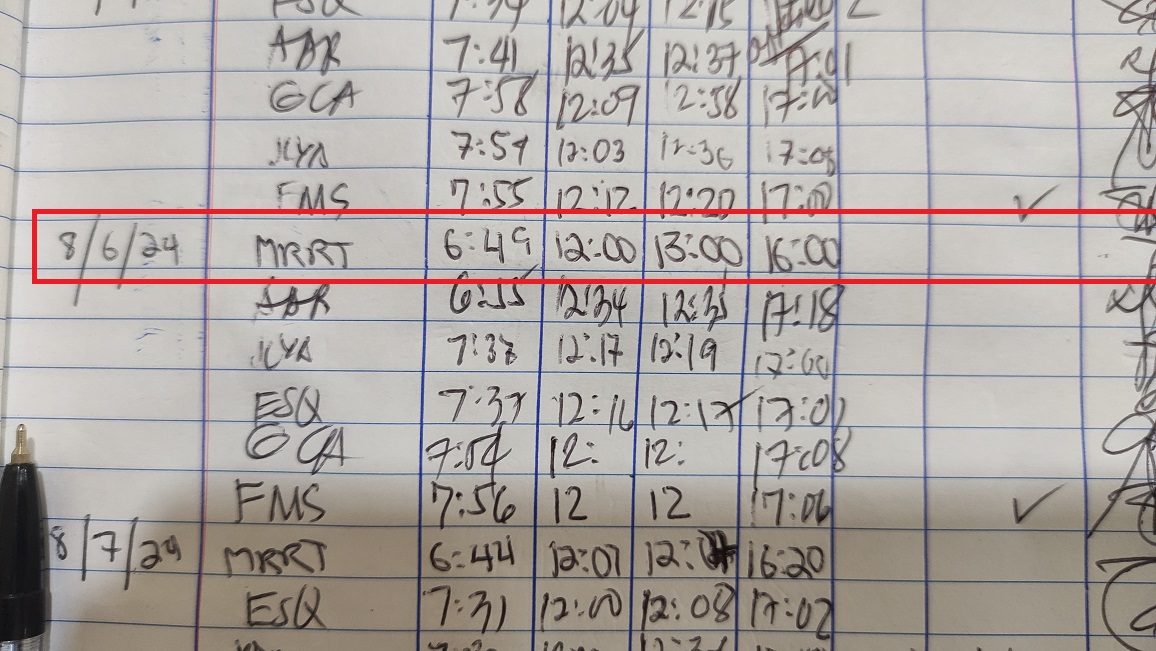 ESQ 7:34 12:04 12:15
ABR 7:41 12:35 12:37 17:01
GCA 7:58 12:09 12:58 17:00
KYA 7:59 12:03 12:36 17:08
FMS 7:55 12:12 12:20 17:00 ✓
8/6/24 MRRT 6:49 12:00 13:00 16:00
ABR 6:55 12:34 12:35 17:18
KYA 7:37 12:17 12:19 17:00
ESQ 7:37 12:16 12:17 17:01
GCA 7:54 12: 12: 17:08
FMS 7:56 12 12 17:06 ✓
8/7/24 MRRT 6:44 12:07 16:20
ESQ 7:31 12:00 12:08 17:02